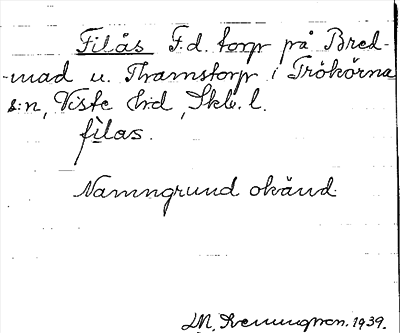 Filås F.d. torp på Bred-
-mad u. Thamstorp i Trökörna
s:n, Viste hd, Skbr. l.
fìlas.
Namngrund okänd.
M. Svenungsson. 1939.